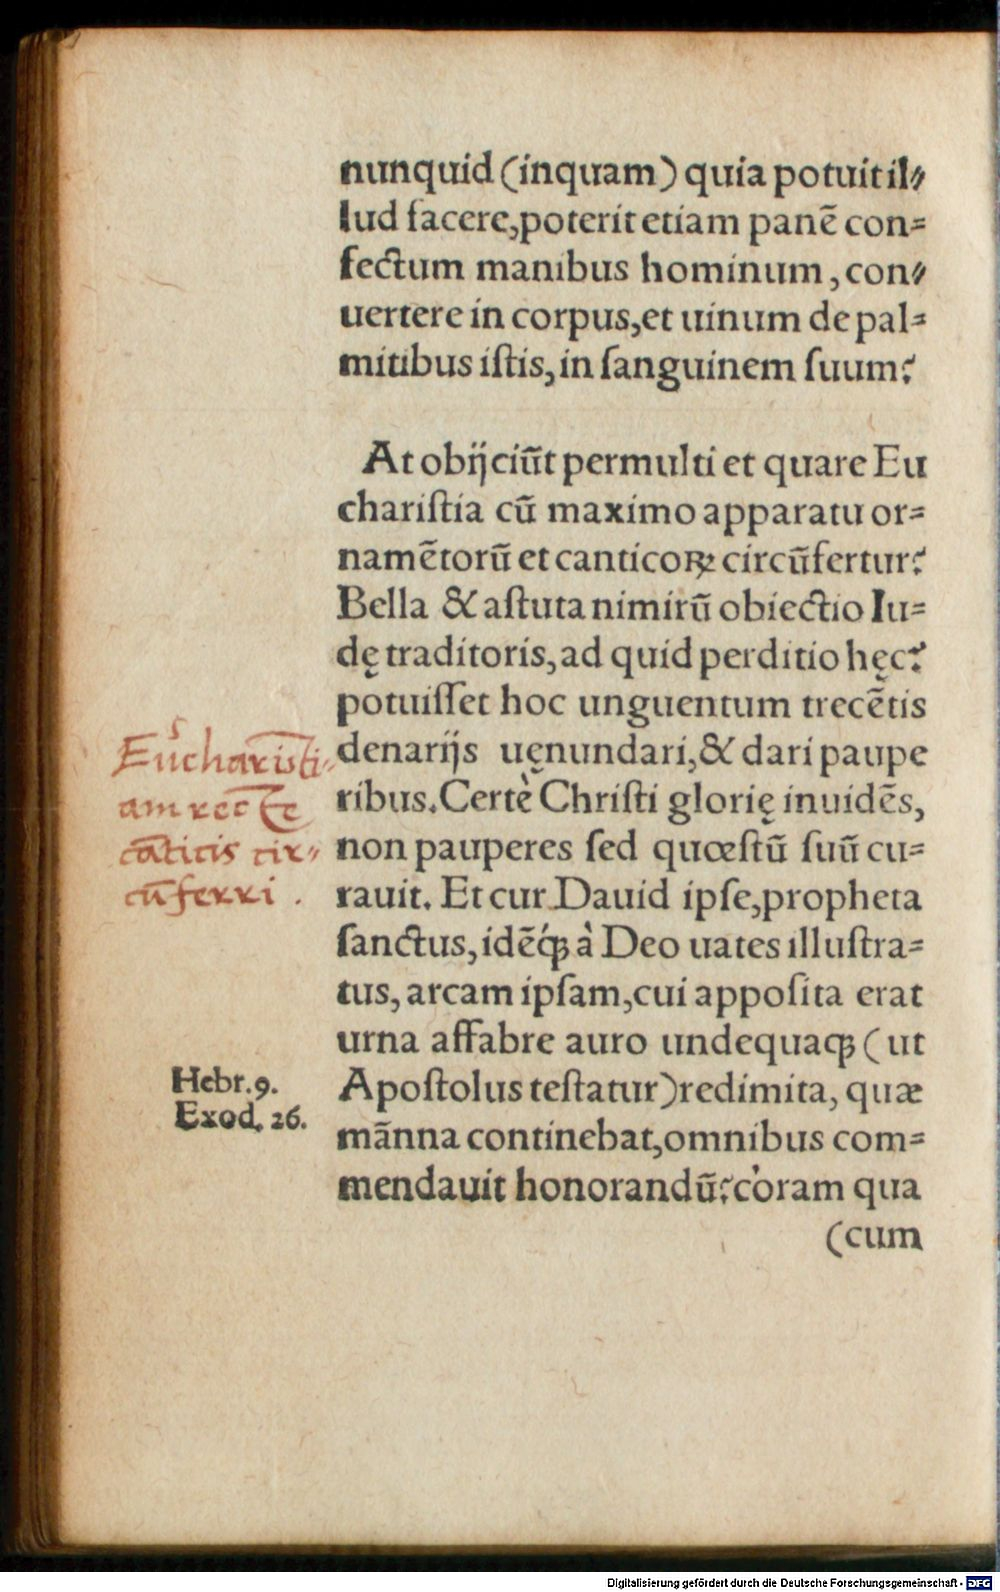 nunquid (inquam) quia potuit il⸗
lud facere, poterit etiam panē con⸗
fectum manibus hominum, con⸗
uertere in corpus, et uinum de pal⸗
mitibus iſtis, in ſanguinem ſuum?
At obijciūt permulti et quare Eu
chariſtia cū maximo apparatu or⸗
namētorū et canticoꝝ circūfertur?
Bella & aſtuta nimirū obiectio Iu⸗
dę traditoris, ad quid perditio hęc?
potuiſſet hoc unguentum trecētis
denarijs uęnundari, & dari paupe
ribus. Certè Chriſti glorię inuidēs,
non pauperes ſed quœſtū ſuū cu⸗
rauit. Et cur Dauid ipſe, propheta
ſanctus, idēq́ꝫ à Deo uates illuſtra⸗
tus, arcam ipſam, cui appoſita erat
urna affabre auro undequaqꝫ (ut
Apoſtolus teſtatur) redimita, quæ
mānna continebat, omnibus com⸗
mendauit honorandū? coram qua
(cum
Euchariſti⸗
am
cāticis cir⸗
cūferri.
Hebr. 9.
Exod. 26.
Digitalisierung gefördert durch die Deutsche Forschungsgemeinschaft - DFG